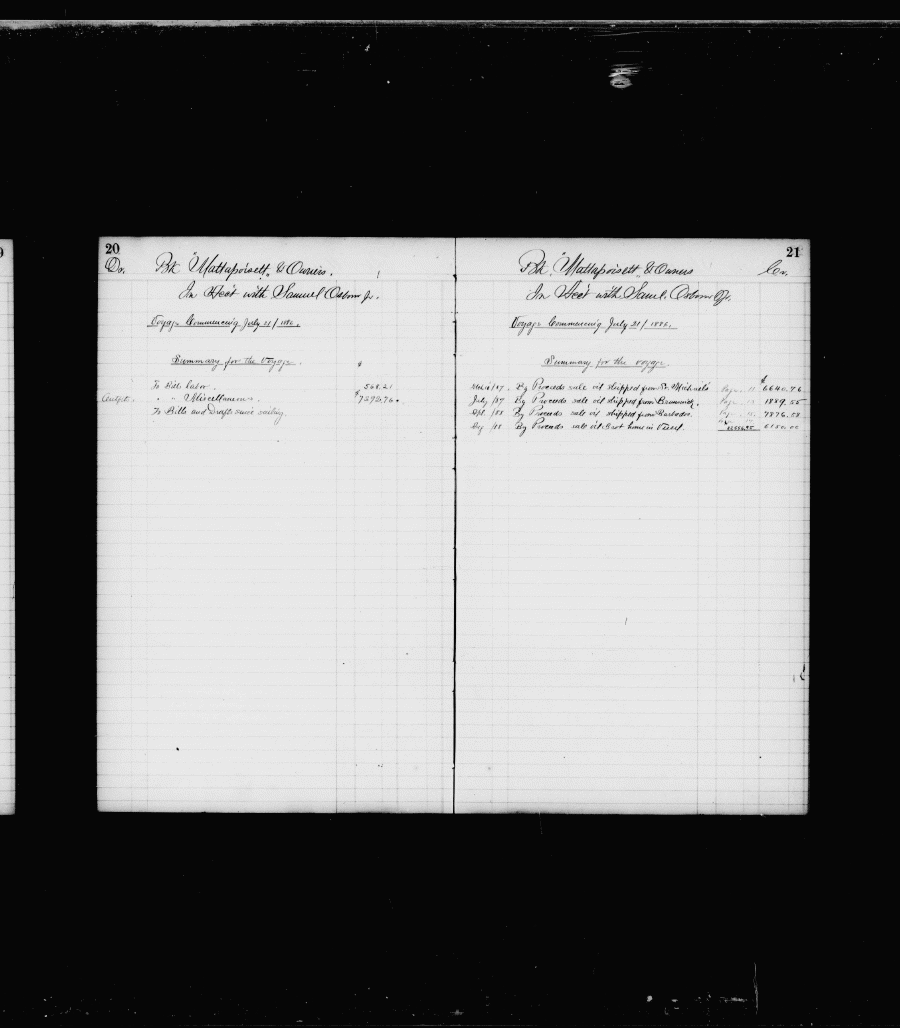 20
Dr. Bk "Mattapoisett" & Owners.
In Acc't with Samuel Osborn Jr.
Voyage Commencing July 21/1886.
Summary for the Voyage.
$
To Bills Labor. 568.21
Outfit. " " Miscellaneous.
To Bills and Drafts since sailing.
21
Bk. "Mattapoisett" & Owners Cr.
In Acc't with Saml. Osborn Jr.
Voyage Commencing July 21/1886.
Summary for the voyage.
$
/87. By Proceeds sale oil shipped from St. Michaels 6640.76
July /87 By Proceeds sale oil shipped from Brunswick. 1889.55
/88 By Proceeds sale oil shipped from Barbados. 7876.58
/88 By Proceeds sale oil Brot home in Vessel. 6150.00